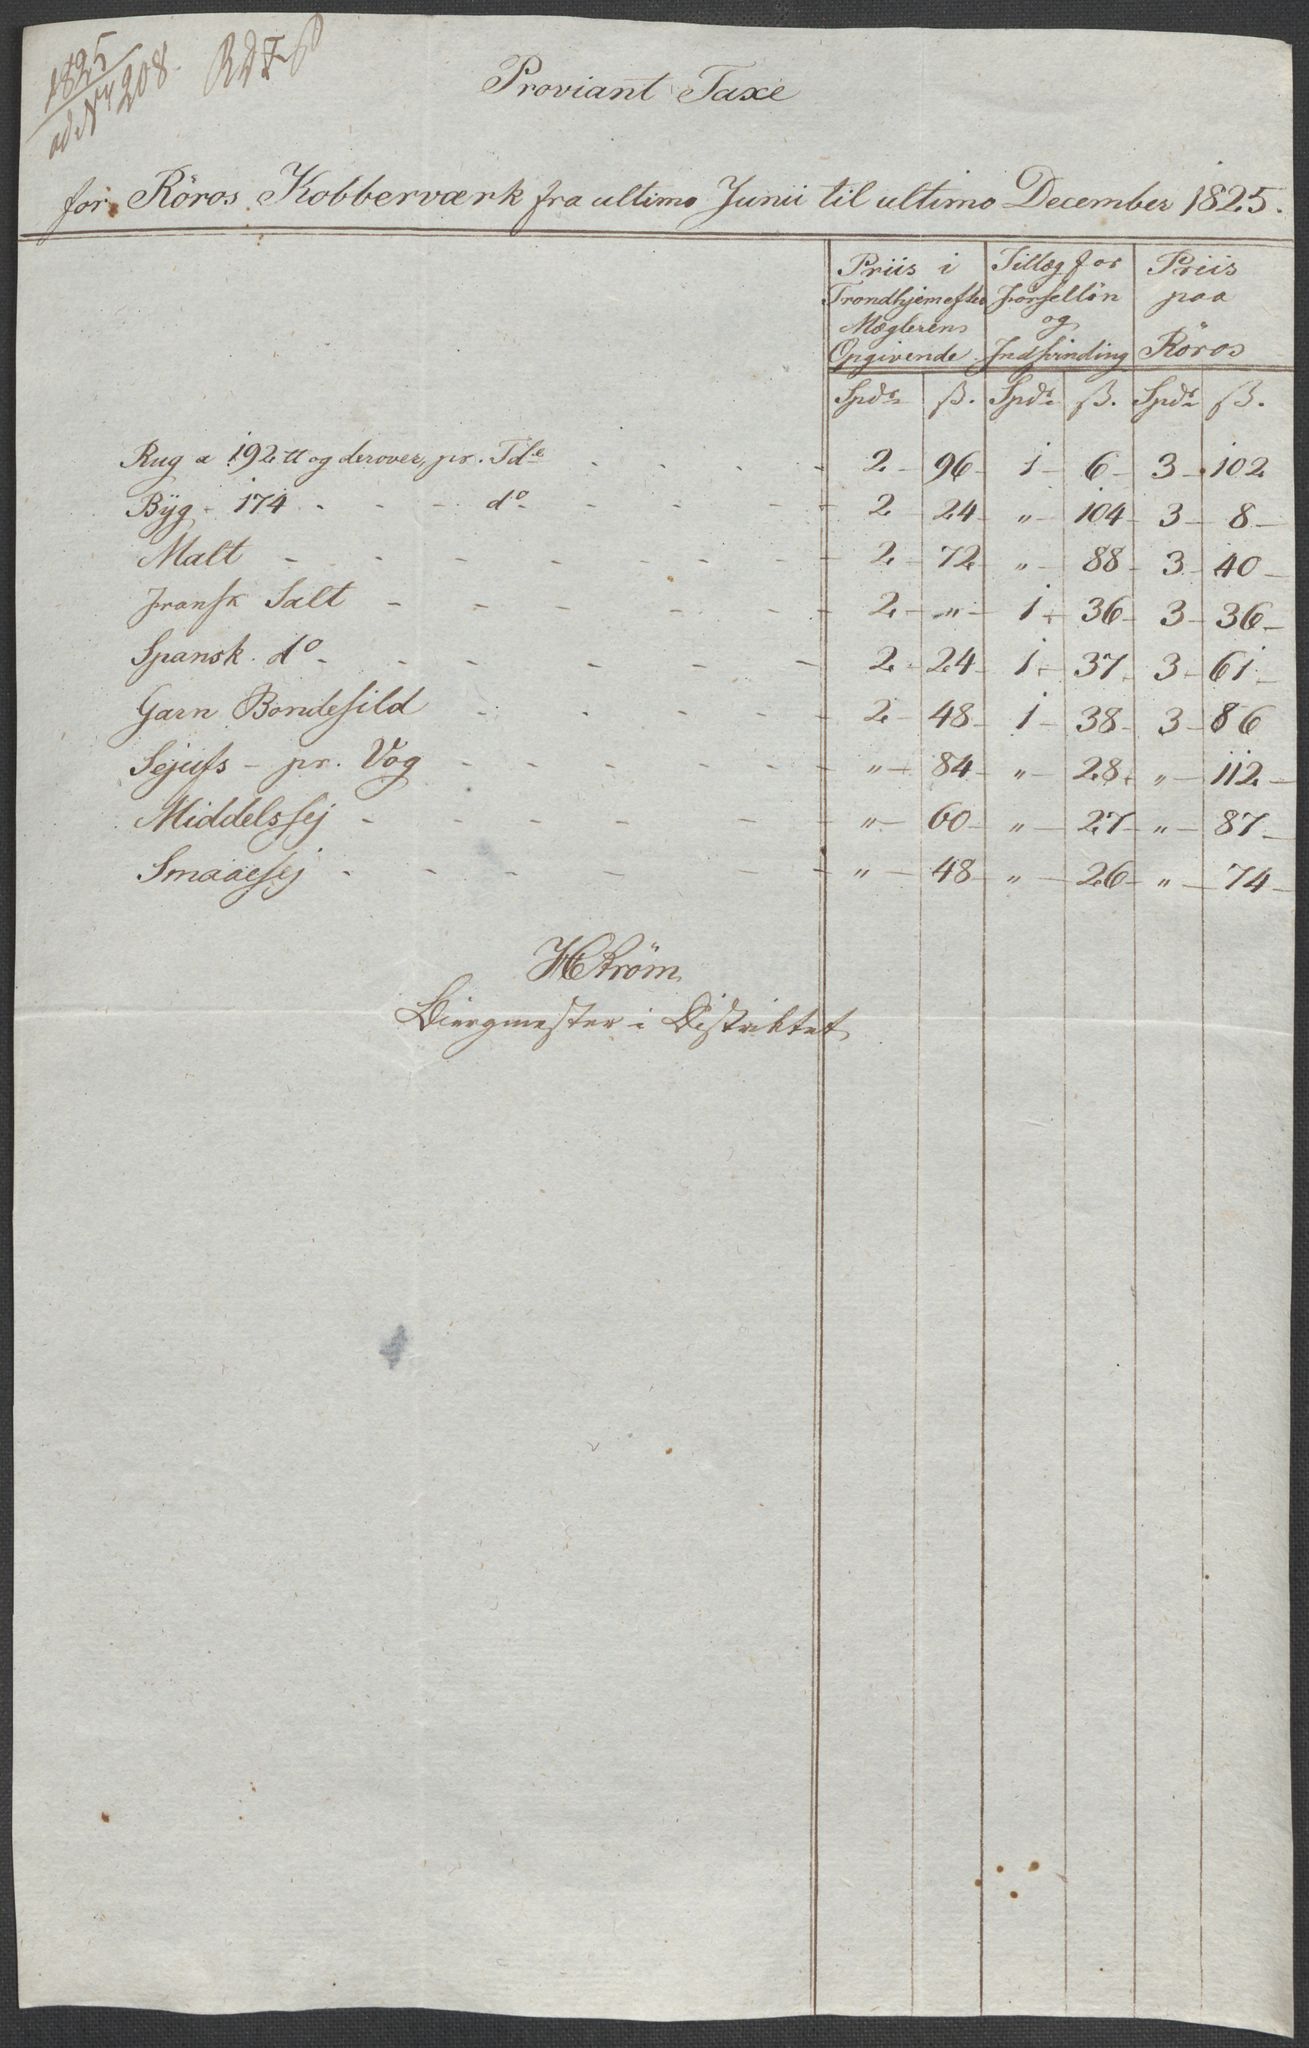 1825
ad No 208.
Proviant Taxe
for Röros Kobberværk fra ultimo Junii til ultimo December 1825.
Priis i Trondhjem efter Mæglerens Opgivende | Tillæg for Forselløn og Indsvinding | Priis paa Röros
Spdr. | ß. | Spdr. | ß. | Spdr. | ß.
Rug a 192 ℔ og derover, pr. Tde - - - - 2 - 96 - 1 - 6 - 3 - 102
Byg - 174 - - - do - - - - 2 24 - " - 104 - 3 - 8 -
Malt - - - - - - - 2 - 72 " - 88 - 3 40 -
Fransk Salt - - - - - - 2 - " - 1 - 36 - 3 - 36 -
Spansk do - - - - - - 2 - 24 - 1 - 37 - 3 - 61 -
Garn Bondesild - - - - - 2 - 48 - 1 - 38 - 3 - 86
Sejufs - pr. Vog - - - - - " - 84 - " - 28 - " - 112 -
Middelssej - - - - - - " - 60 - " - 27 - " - 87 -
Smaaesej - - - - - - " - 48 - " - 26 - " - 74 -
HStröm
Biergmester i Distriktet